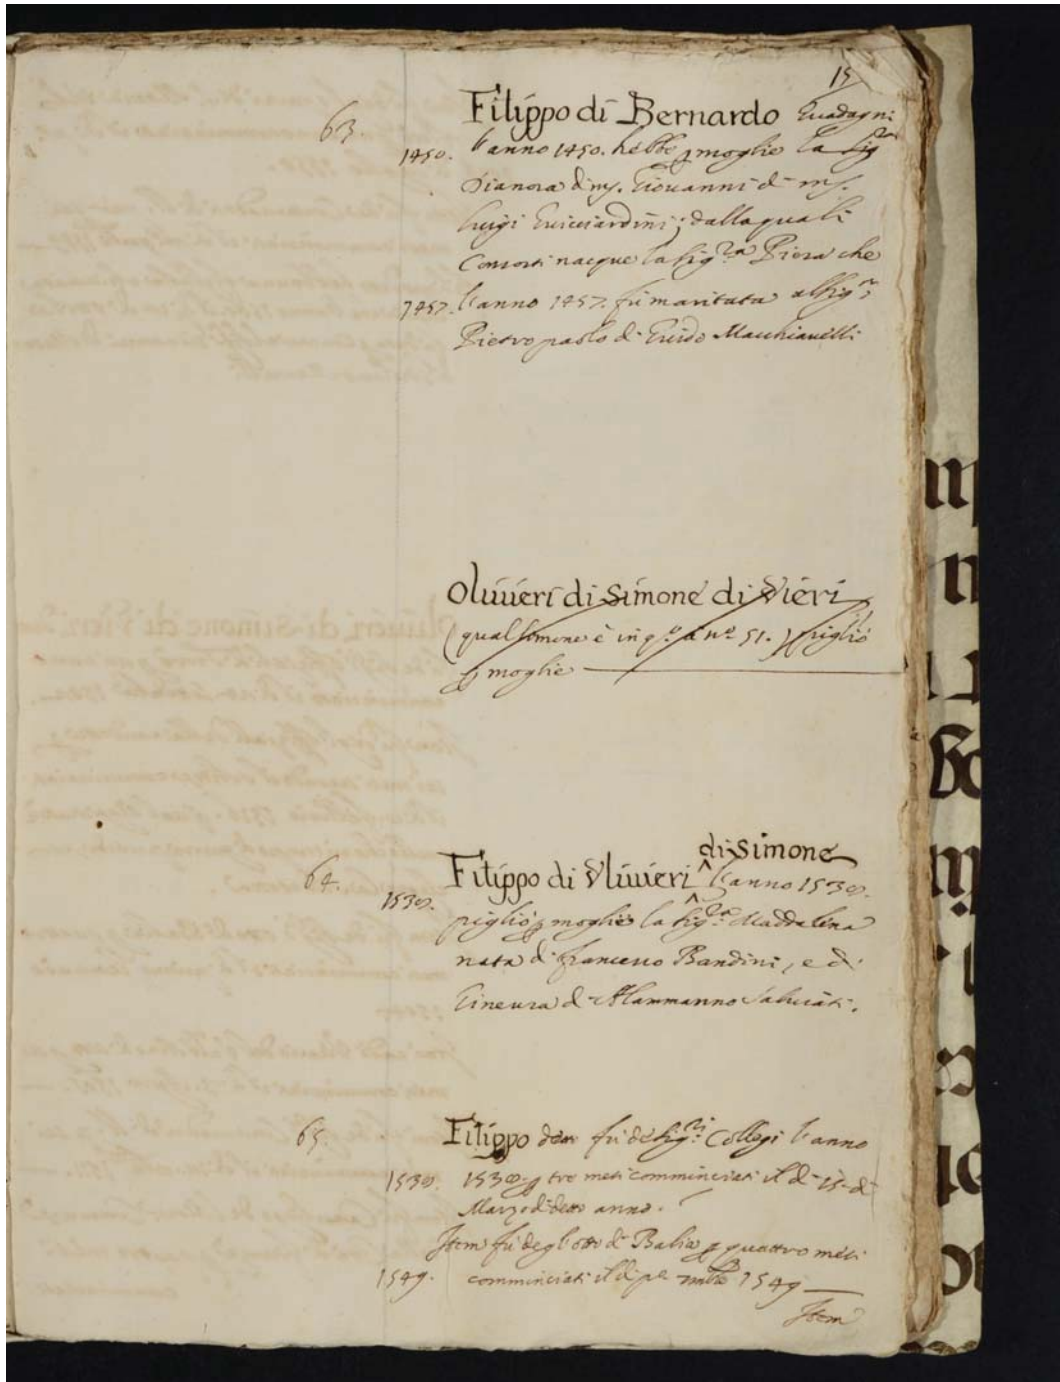 15
63.
Filippo di Bernardo Guadagni
1450. l'anno 1450. hebbe p moglie la Sig.ra
Dianora di ms. Giovanni di ms.
Luigi Guicciardini; dalla quali
Consorti nacque la Sig.ra Piera che
1457. l'anno 1457. fù maritata al Sig.r
Pietro paolo di Guido Macchiavelli
Oluvieri di Simone di Vieri
(qual Simone è in q.o à n.o 51.) pigliò
p moglie
di Simone
64. Filippo di Vluvieri l'anno 1538.
1538.
pigliò p moglie la Sig.ra Maddalena
nata di Francesco Bandini, e di
Gineura di Alammanno Salviati.
65. Filippo detto fù de Sig.ri Collegi l'anno
1538. 1538. p tre mesi comminciati il dì 15. di
Marzo di detto anno.
Item fù degl'otto di Balia p quattro mesi
1549. comminciati il dì p.o 1549
Item